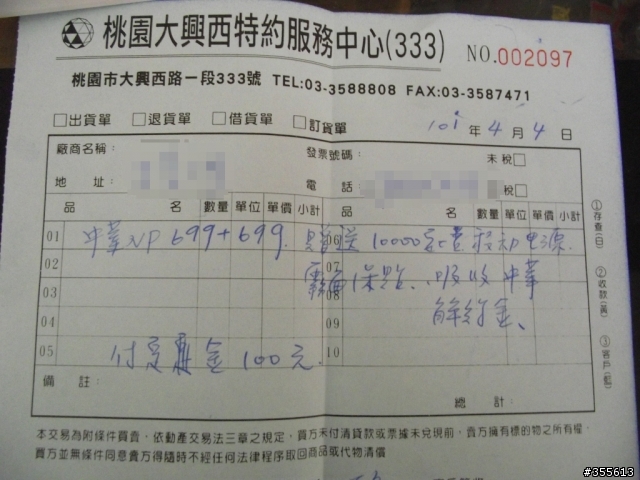 桃園大興西特約服務中心(333) NO.002097
桃園市大興西路一段333號 TEL:03-3588808 FAX:03-3587471
□出貨單 □退貨單 □借貨單 □訂貨單 101年4月4日
廠商名稱： 發票號碼： 未稅□
地 址： 電 話： 稅□
品 名 數量 單位 單價 小計 品 名 數量 單位 單價 小計
01 中華NP 699+699. 贈送10000 電源
02 07 保貼、吸收中華
03 08 解約金、
04 09
05 付定金100元. 10
備 註：
總 計：
①存查(白) ②收款(黃) ③客戶(藍)
本交易為附條件買賣，依動產交易法三章之規定，買方未付清貨款或票據未兌現前，賣方擁有標的物之所有權，
買方並無條件同意賣方得隨時不經任何法律程序取回商品或代物清償
#355613